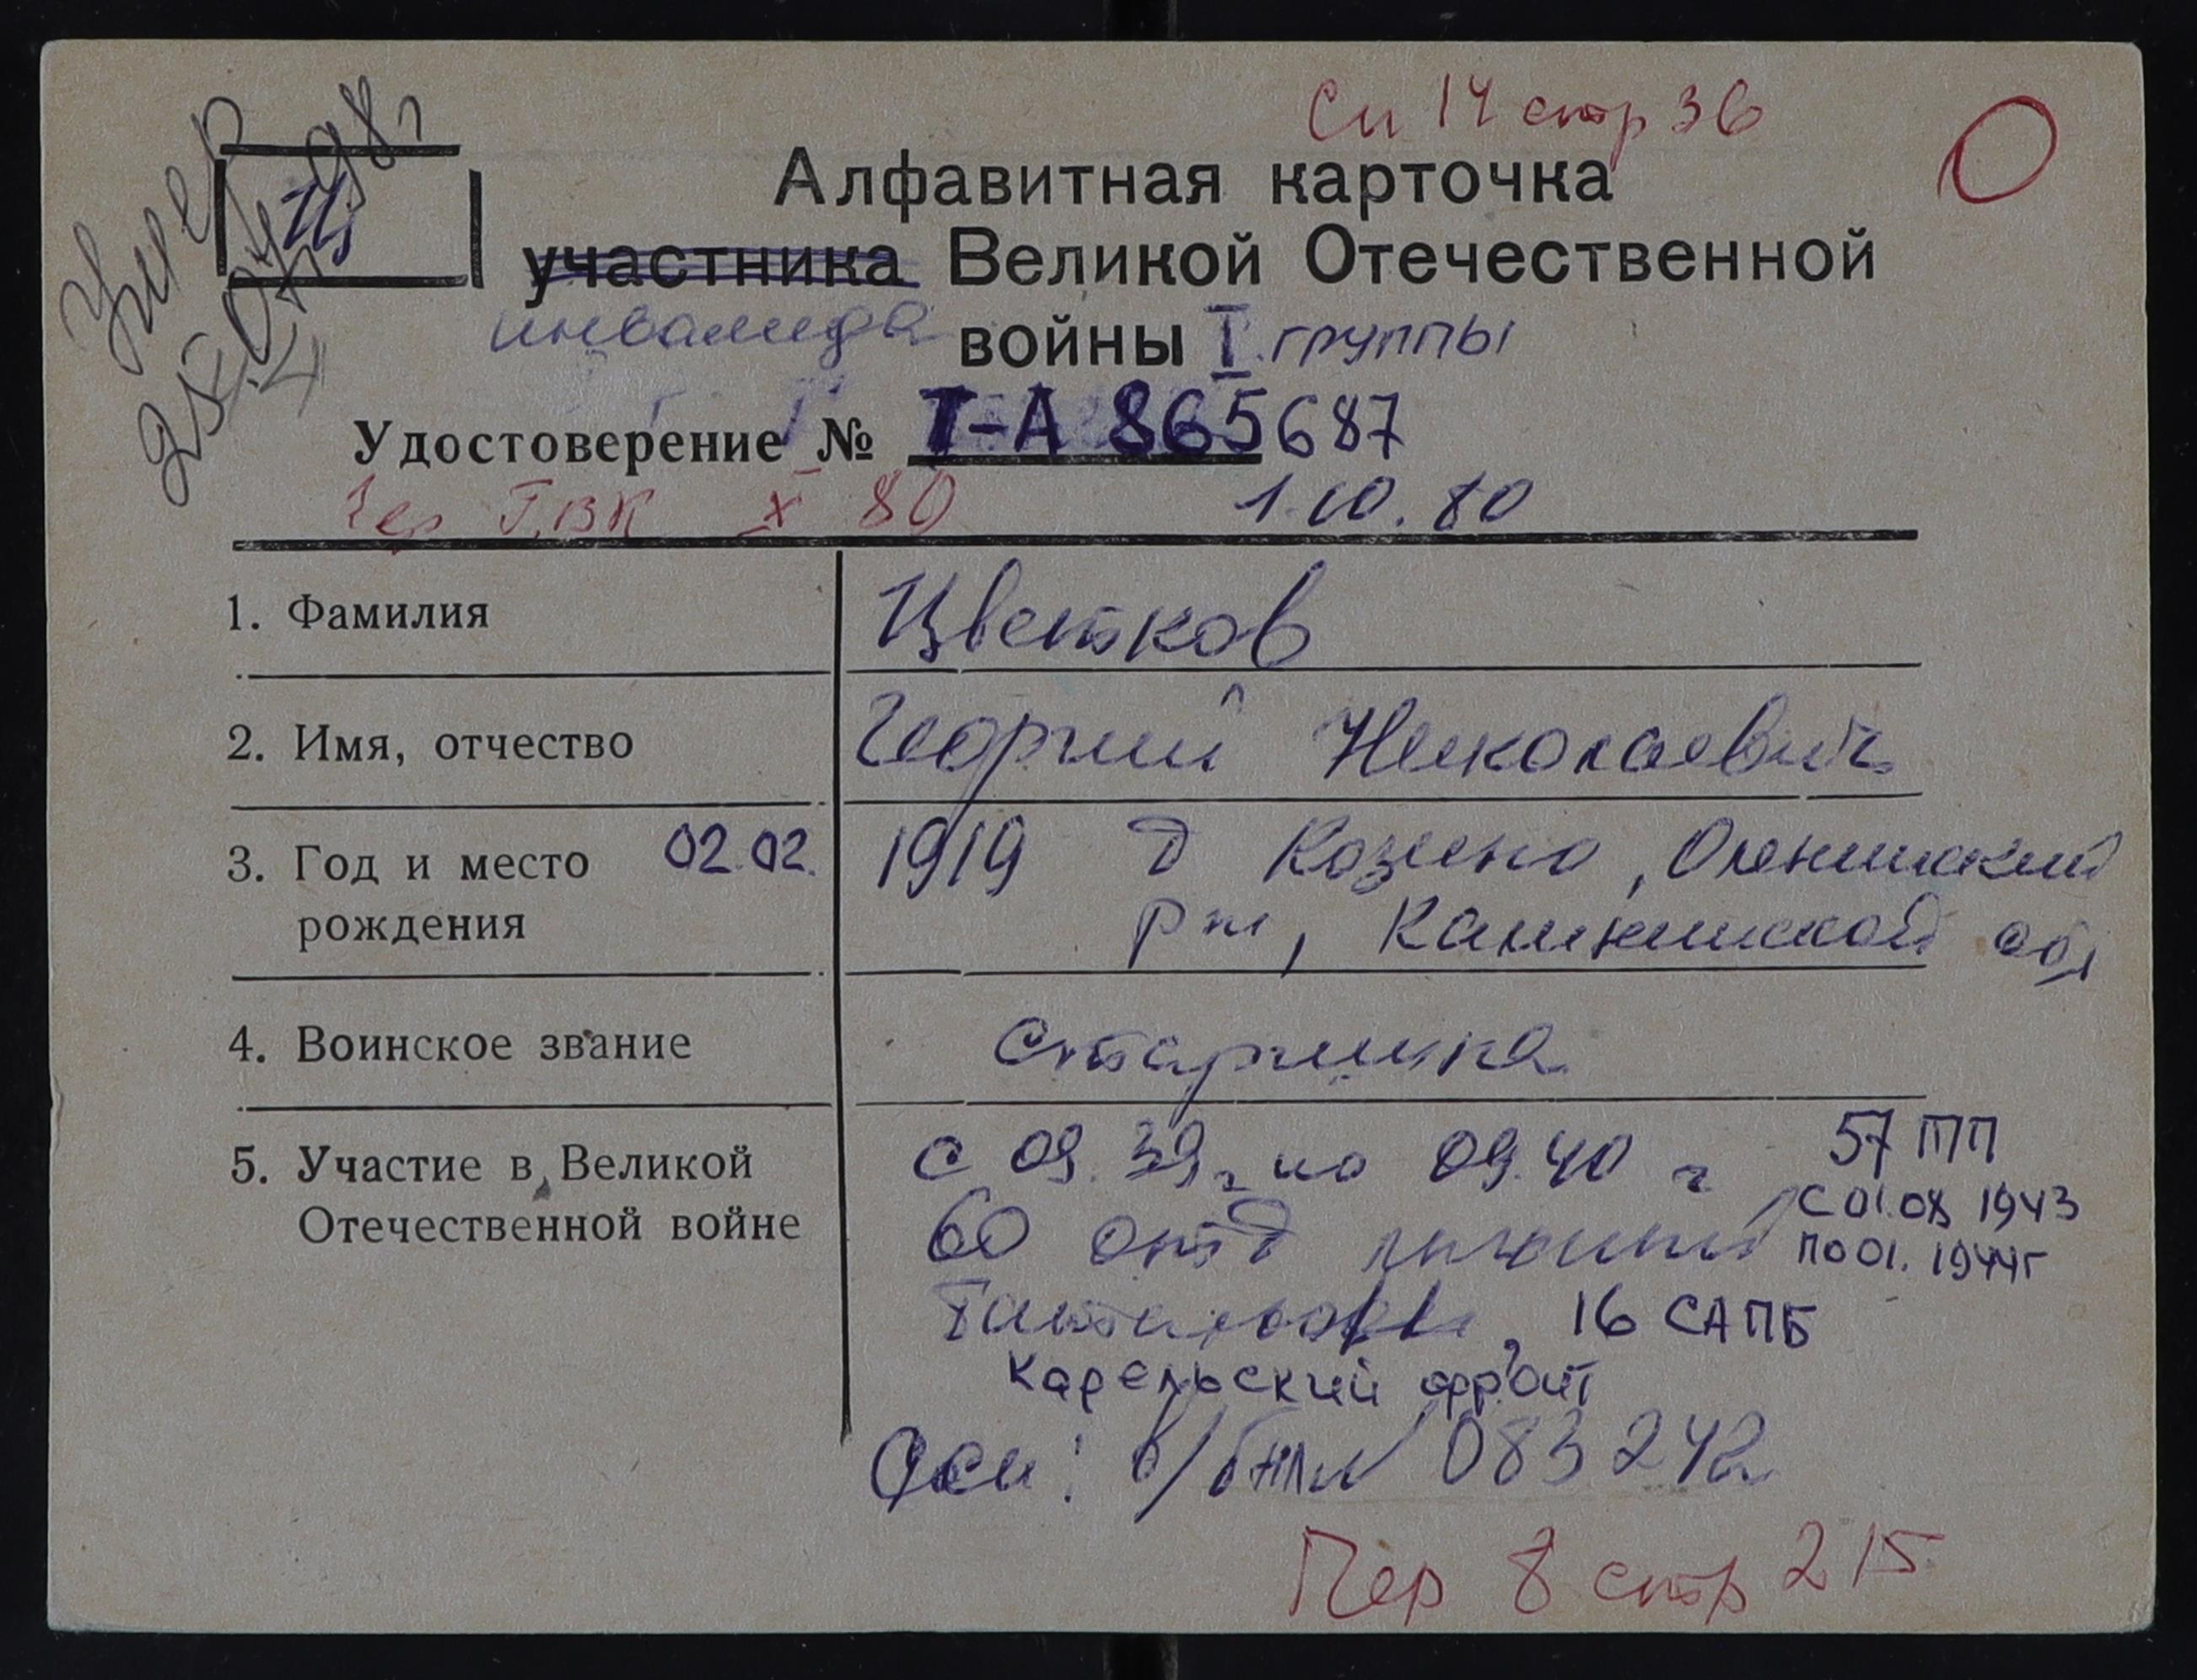 Сп 14 стр 36
Умер
25-04-98г
Ц
Алфавитная карточка
участника Великой Отечественной
инвалида войны I группы
Удостоверение № Т-А 865687
Чер ГВК X 80 1.10.80
1. Фамилия Цветков
2. Имя, отчество Георгий Николаевич
3. Год и место 02.02. 1919 д Козено, Оленинский
рождения р-н, Калининской обл
4. Воинское звание старшина
5. Участие в Великой с 09.39г по 09.40 г 57 ПП
Отечественной войне 60 отд лыжный С 01.08 1943
ПО 01. 1944г
батальон, 16 САПБ
Карельский фронт
Осн: в/билет 083242
Пер 8 стр 215